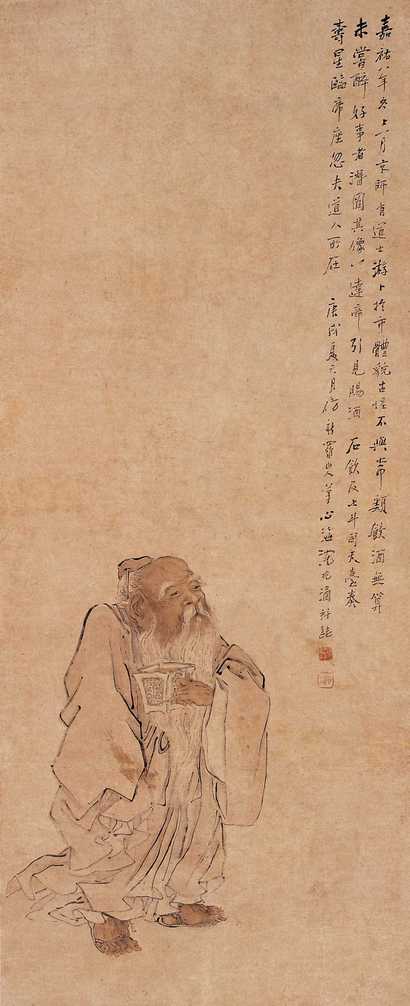 嘉祐八年冬十一月京師有道士游卜於市體貌古怪不與常類飲酒無算
未嘗醉好事者潛圖其像以達帝引見賜酒一石飲及七斗司天臺奏
壽星臨帝座忽失道人所在 庚戌夏六月仿新羅山人筆心海沈兆涵并誌